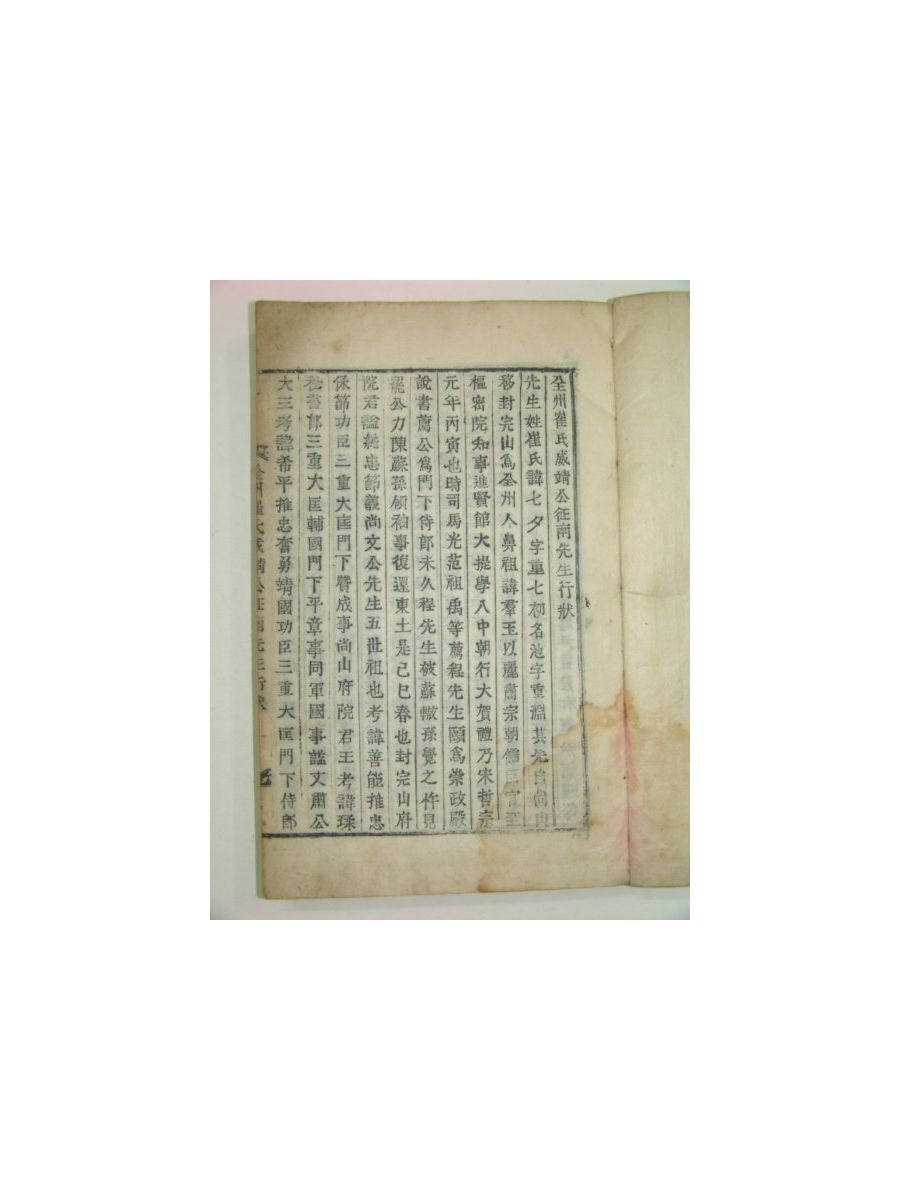 全州崔氏威靖公征南先生行狀
先生姓崔氏諱七夕字重七初名池字重淵其先自尙
移封完山爲全州人鼻祖諱羣玉以麗肅宗朝儒臣官至
樞密院知事進賢館大提學入中朝行大賀禮乃宋哲宗
元年丙寅也時司馬光范祖禹等薦程先生頤爲崇政殿
說書薦公爲門下侍郎未久程先生被蘇轍孫覺之忤見
罷公力陳蘇孫領袖事復還東土是己巳春也封完山府
院君謚 忠節義尚文公先生五世祖也考諱善能推忠
保節功臣三重大匡門下贊成事尚山府院君王考諱
秘書郞三重大匡輔國門下平章事同軍國事謚文肅公
大王考諱希平推忠奮勇靖國功臣三重大匡門下侍郎
全州崔氏威靖公征南先生行狀